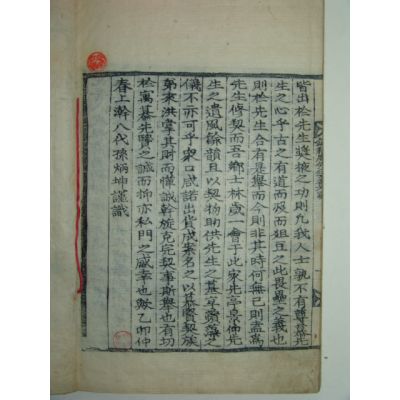 皆出於先生遑掖之功則凡我人士孰不有尊慕先
生之心乎古之有道而沒而俎豆之此畏壘之義也
則於先生合有是擧而今則非其時何無已則盍爲
先生修契而吾鄕士林歲一會于此家先亭景仰先
生之遺風餘韻且以契物助供先生之墓享蘋藻之
儀不亦可乎衆口咸諾出貨成案名之以慕賢契族
弟來洪掌其財而憚誠幹旋克完契事斯擧也有切
於寓慕先賢之誠而抑亦私門之感幸也歟乙卯仲
春上澣八代孫炳坤謹識